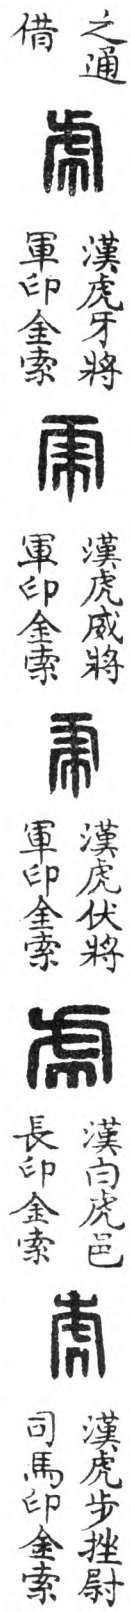 之通
借
虎
漢虎牙將
軍印金索
虎
漢虎威將
軍印金索
虎
漢虎伏將
軍印金索
虎
漢白虎邑
長印金索
虎
漢虎步挫尉
司馬印金索